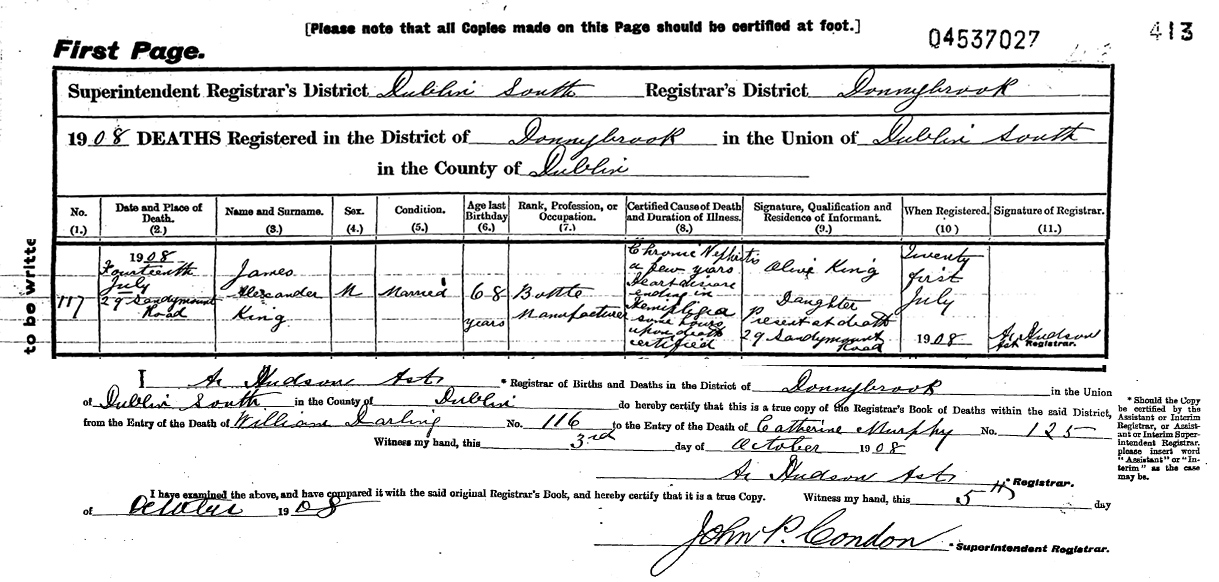 [Please note that all Copies made on this Page should be certified at foot.]
Q4537027
413
First Page.
Superintendent Registrar's District Dublin South Registrar's District Donnybrook
1908 DEATHS Registered in the District of Donnybrook in the Union of Dublin South
in the County of Dublin
No. (1.)
Date and Place of Death. (2.)
Name and Surname. (3.)
Sex. (4.)
Condition. (5.)
Age last Birthday (6.)
Rank, Profession, or Occupation. (7.)
Certified Cause of Death and Duration of Illness. (8.)
Signature, Qualification and Residence of Informant. (9.)
When Registered. (10)
Signature of Registrar. (11.)
to be writte
117
1908
Fourteenth
July
29 Sandymount
Road
James
Alexander
King
M
Married
68
years
Bottle
Manufacturer
Chronic Nephritis
a few years
Heart disease
ending in
Hemiplegia
some hours
upon death
certified
Olive King
Daughter
Present at death
29 Sandymount
Road
Twenty
first
July
1908
A. Hudson
Ast Registrar.
I A. Hudson Ast * Registrar of Births and Deaths in the District of Donnybrook in the Union
of Dublin South in the County of Dublin do hereby certify that this is a true copy of the Registrar's Book of Deaths within the said District,
from the Entry of the Death of William Darling No. 116 to the Entry of the Death of Catherine Murphy No. 125
Witness my hand, this 3rd day of October 1908
A. Hudson Ast * Registrar.
I have examined the above, and have compared it with the said original Registrar's Book, and hereby certify that it is a true Copy. Witness my hand, this 5th day
of October 1908
John P. Condon * Superintendent Registrar.
* Should the Copy
be certified by the
Assistant or Interim
Registrar, or Assist-
ant or Interim Super-
intendent Registrar.
please insert word
"Assistant" or "In-
terim" as the case
may be.